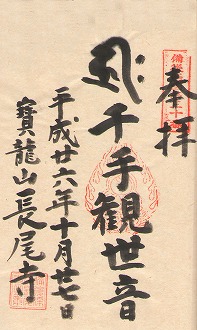 奉拝
千手観世音
平成廿六年十月廿七日
寶龍山長尾寺